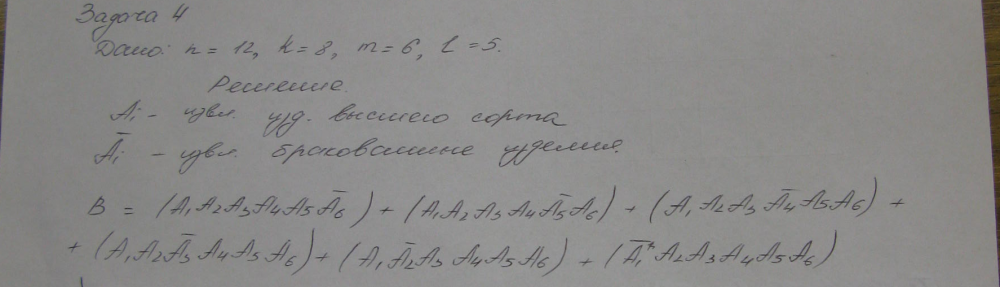 Задача 4
Дано: n = 12, k = 8, m = 6, l = 5.
Решение.
Ai - извл. изд. высшего сорта
A̅i - извл. бракованные изделия.
B = (A₁A₂A₃A₄A₅A̅₆) + (A₁A₂A₃A₄A̅₅A₆) + (A₁A₂A₃A̅₄A₅A₆) +
+ (A₁A₂A̅₃A₄A₅A₆) + (A₁A̅₂A₃A₄A₅A₆) + (A̅₁A₂A₃A₄A₅A₆)